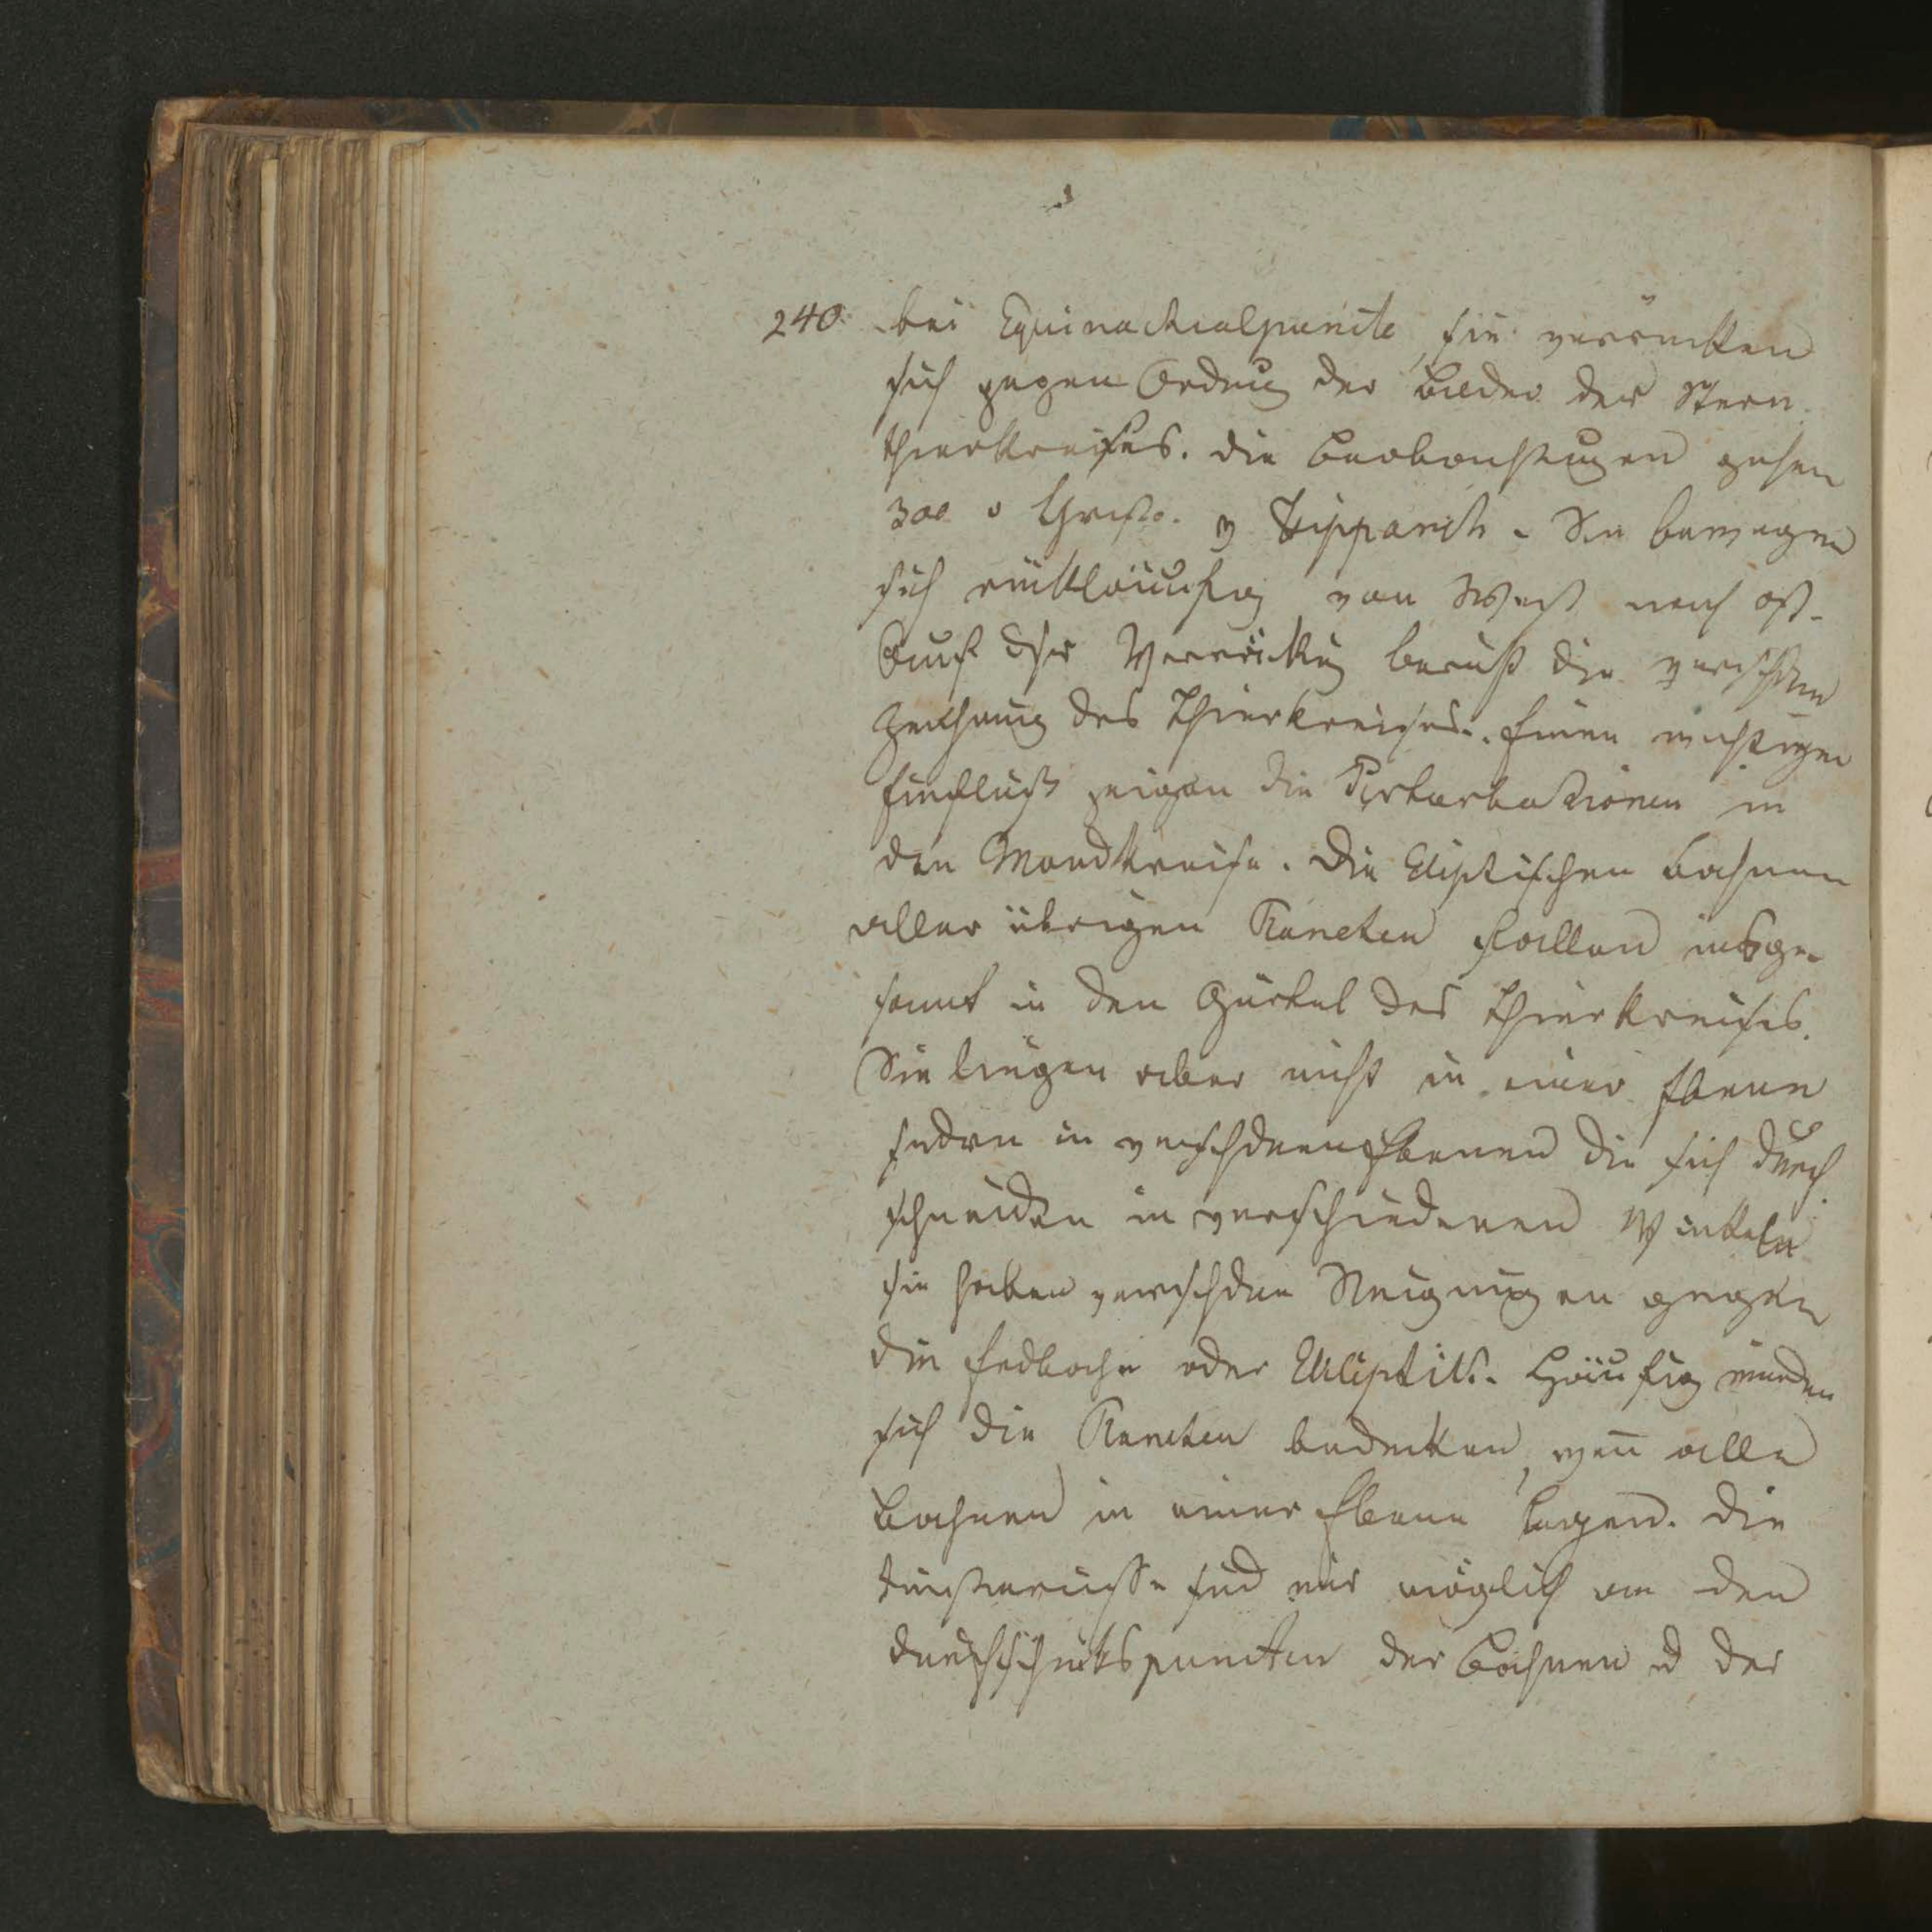 240. bei Equinoctialpuncte, sie verrücken
sich gegen Ordnug der Bilder der Stern
thierkreises. die Beobachtugen gehen
300 v Christo. v Hipparch. Sie bewegen
sich rückläufig von West nach ost.
Auf dsr Verrückug beruht die verschdne
Zeichnung des Thierkreises. Einen wichtigen
Einfluß zeigen die Perturbationen in
den Mondkreise. Die Eliptischen Bahnen
aller übrigen Planeten fallen insge-
samt in den Gürtel des Thierkreises.
Sie liegen aber nicht in einer Ebene
sodrn in verschdnen Ebenen die sich durch
schneiden in verschiedenen Winkeln
sie haben verschdne Neigungen gegen
die Erdbahn oder Ekliptik. Häufig würden
sich die Planeten bedecken, wen̄ alle
Bahnen in einer Ebene lagen. Die
Finsternisse sind nur möglich an den
durchschnitspuncten der Bahnen ud der